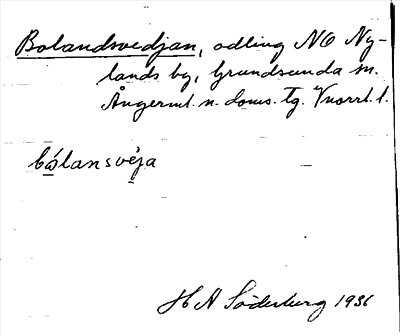 Bolandsvedjan, odling NO Ny-
lands by, Grundsunda sn.
Ångerml. n. doms. tg. Vnorrl. l.
bólansvéja
H A Söderberg 1936